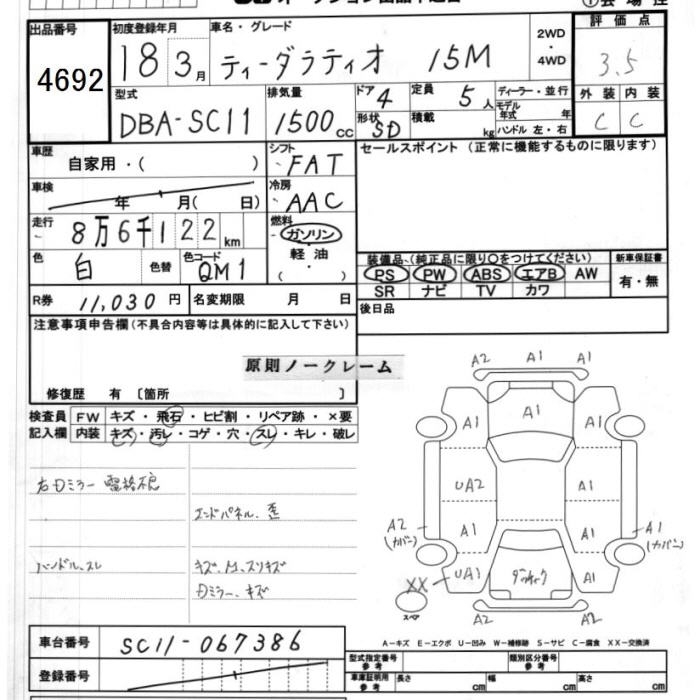 出品番号
4692
初度登録年月
18 3月
車名・グレード
ティーダラティオ 15M
2WD
・
4WD
評価点
3.5
型式
DBA-SC11
排気量
1500cc
ドア
4
形状
SD
定員
5人
積載
kg
ディーラー・並行
モデル年式 年
ハンドル 左・右
外装 内装
C C
車歴
自家用・( )
シフト
FAT
セールスポイント (正常に機能するものに限ります)
車検
年 月( 日)
冷房
AAC
走行
8万6千122km
燃料
ガソリン
・
軽油
( )
色
白
色替
色コード
QM1
装備品 (純正品に限り○をつけてください)
PS PW ABS エアB AW
SR ナビ TV カワ
新車保証書
有・無
R券
11,030円
名変期限 月 日
後日品
注意事項申告欄(不具合内容等は具体的に記入して下さい)
原則ノークレーム
修復歴 有 〔箇所 〕
検査員
記入欄
FW キズ・飛石・ヒビ割・リペア跡・×要
内装 キズ・汚レ・コゲ・穴・スレ・キレ・破レ
右Dミラー 電格不良
エンドパネル、歪
ハンドル、スレ
Dミラー、キズ
A2 A1 A1
A1 A1 A1
UA2 A1
A2 (カバン) A1 A1 A1 (カバン)
XX UA1 A1
スペア
A2 A2
車台番号
SC11-067386
登録番号
A－キズ E－エクボ U－凹み W－補修跡 S－サビ C－腐食 XX－交換済
型式指定番号
参考
類別区分番号
参考
車庫証明用
参考
長さ cm
幅 cm
高さ cm